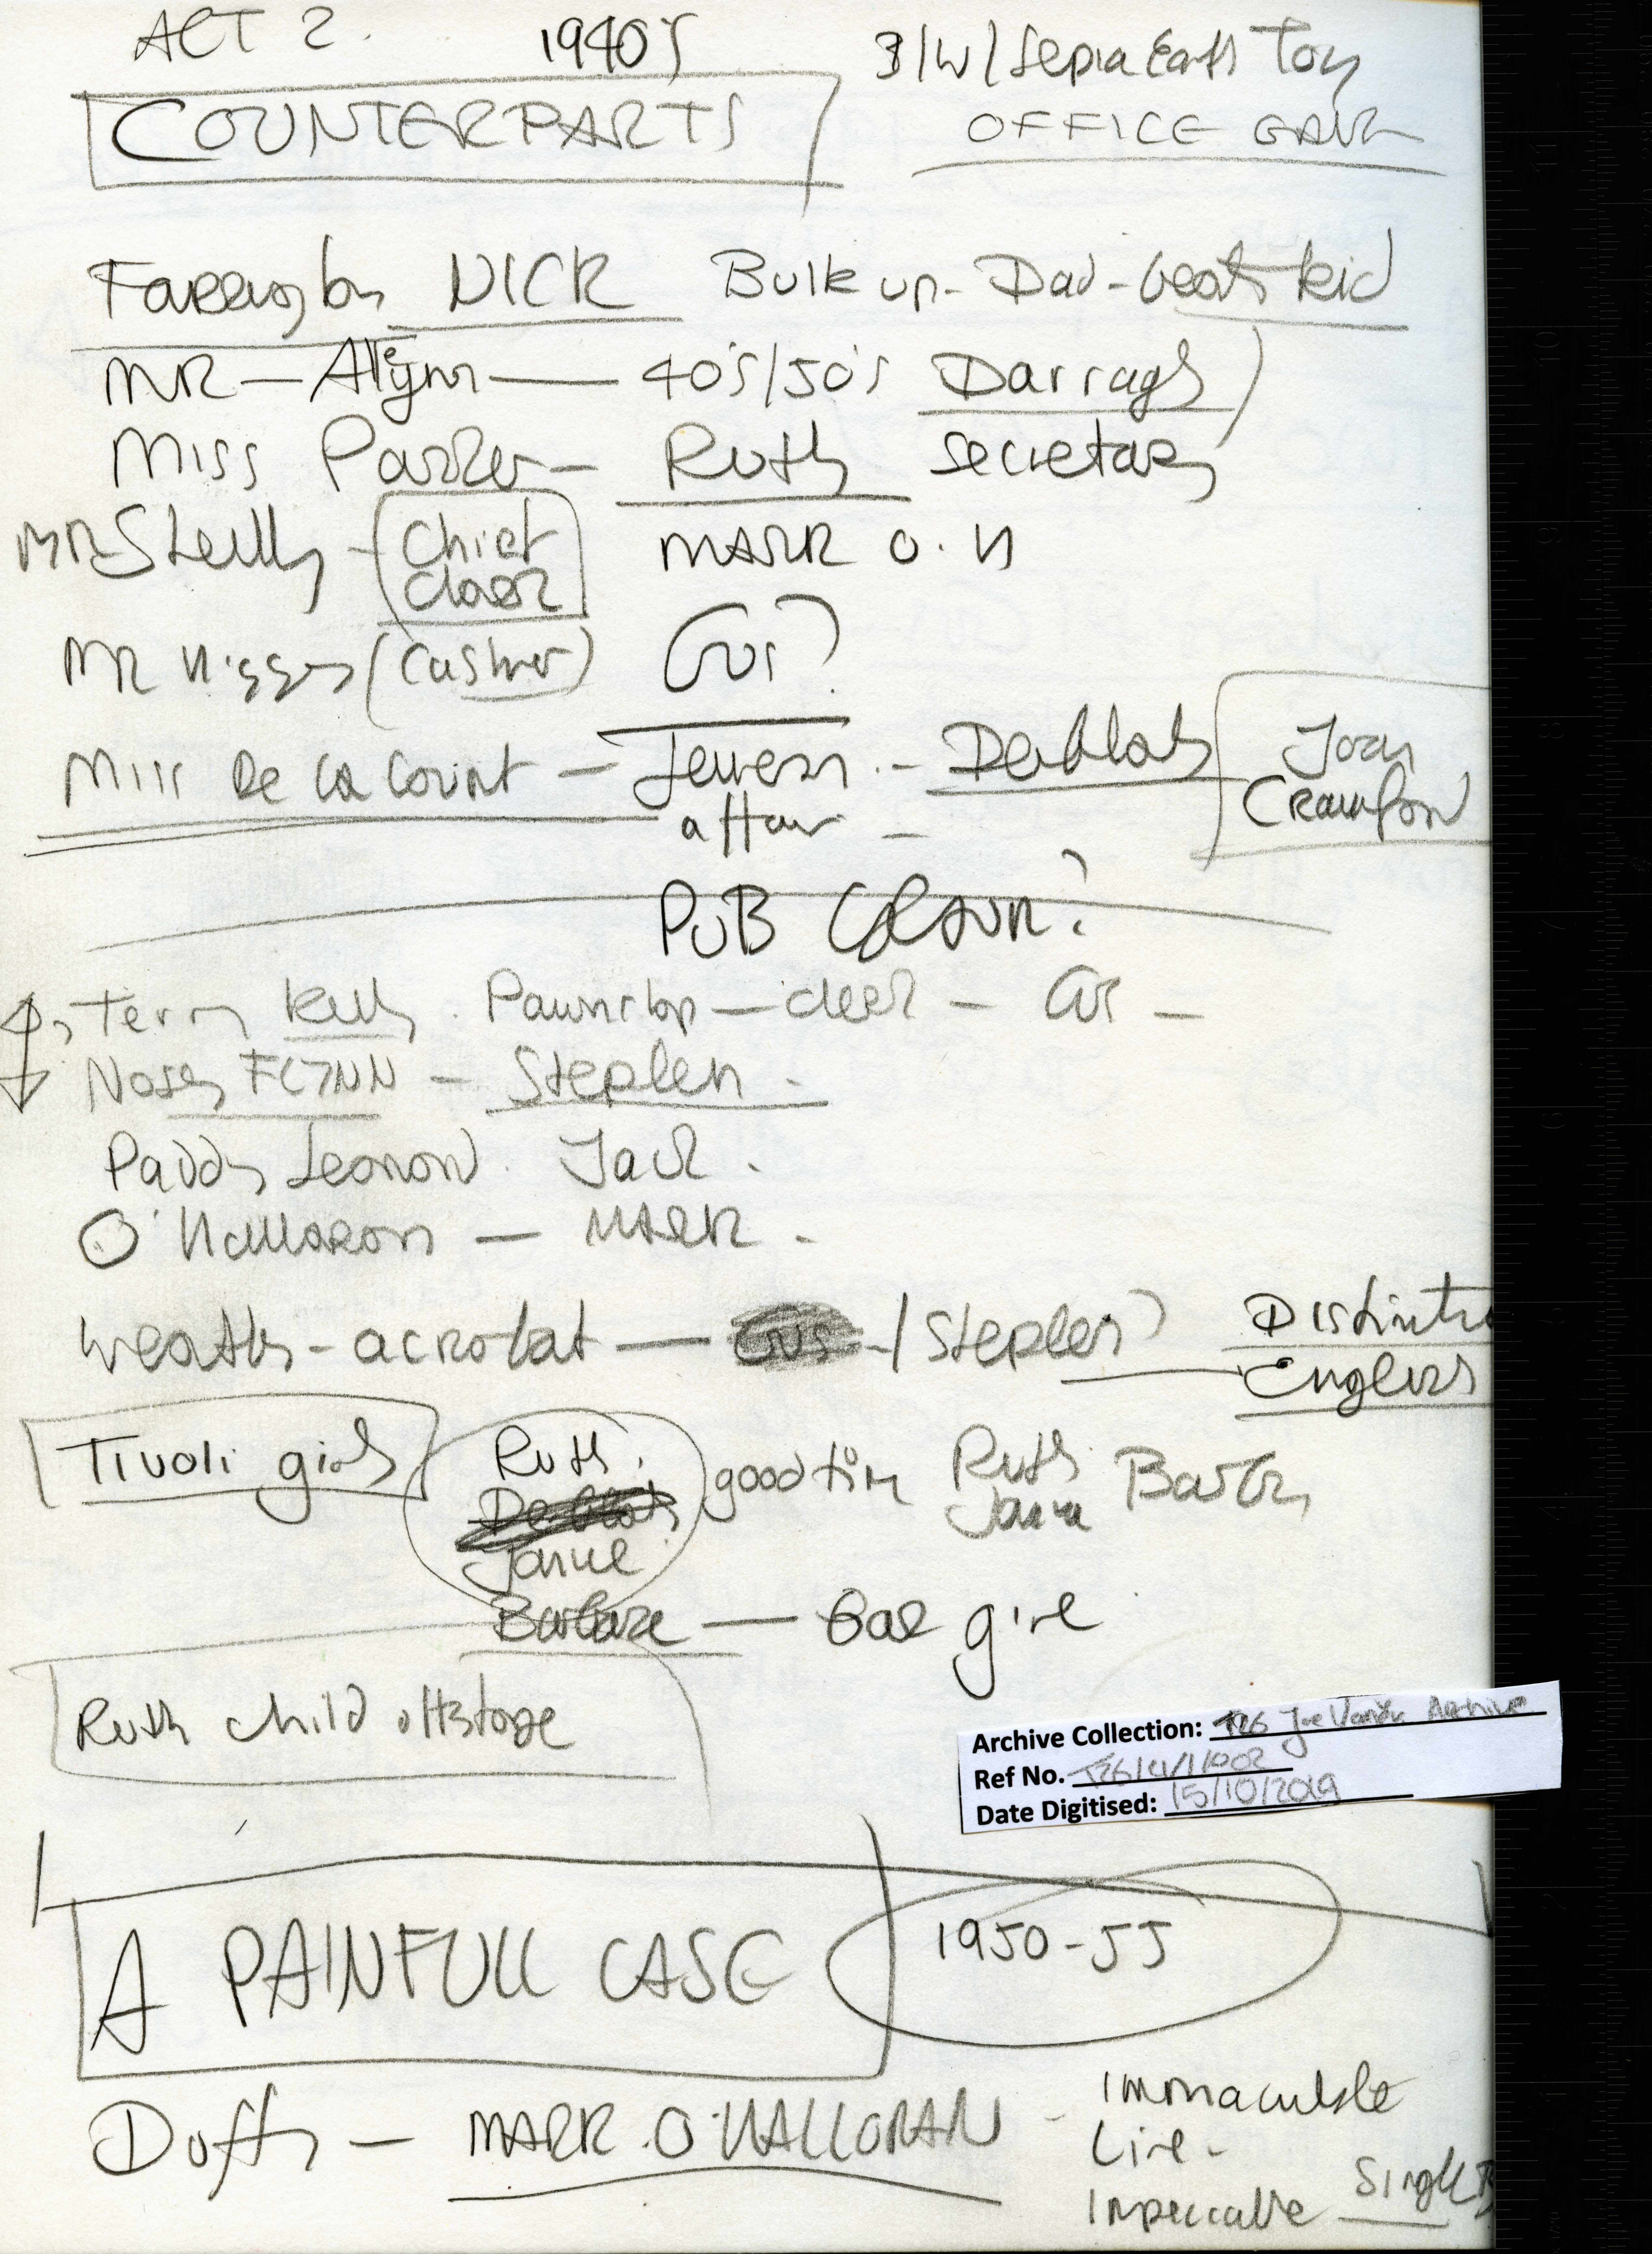 ACT 2. 1940's B/W/Sepia Early Tony
COUNTERPARTS OFFICE GANG
Farrington NICK Bulk up - Dad - beats kid
MR — Alleyne — 40's/50's Darragh
Miss Parker — Ruth secretary
MR Shelly - Chief MARK O. H
Clerk
MR Higgins (Cashier) Gus?
Miss De la Cour - Jewess - Deblah Joan
affair - Crawford
PUB COLOUR?
Terry Kelly. Pawnshop — clerk — Gus —
Nosey FLYNN - Stephen -
Paddy Leonard. Jack.
O'Halloran — MARK -
Weathers - acrobat — Gus - / Stephen? Distinct
English
Tivoli girls Ruth. good time Ruth Barby
Janice
Janice
Barbara — Bar girl
Ruth child offstage
Archive Collection: T26 Joe Vaněk Archive
Ref No.
Date Digitised: 15/10/2019
A PAINFULL CASE 1950-55
Duffy — MARK O'HALLORAN - Immaculate
Live -
Impeccable Single